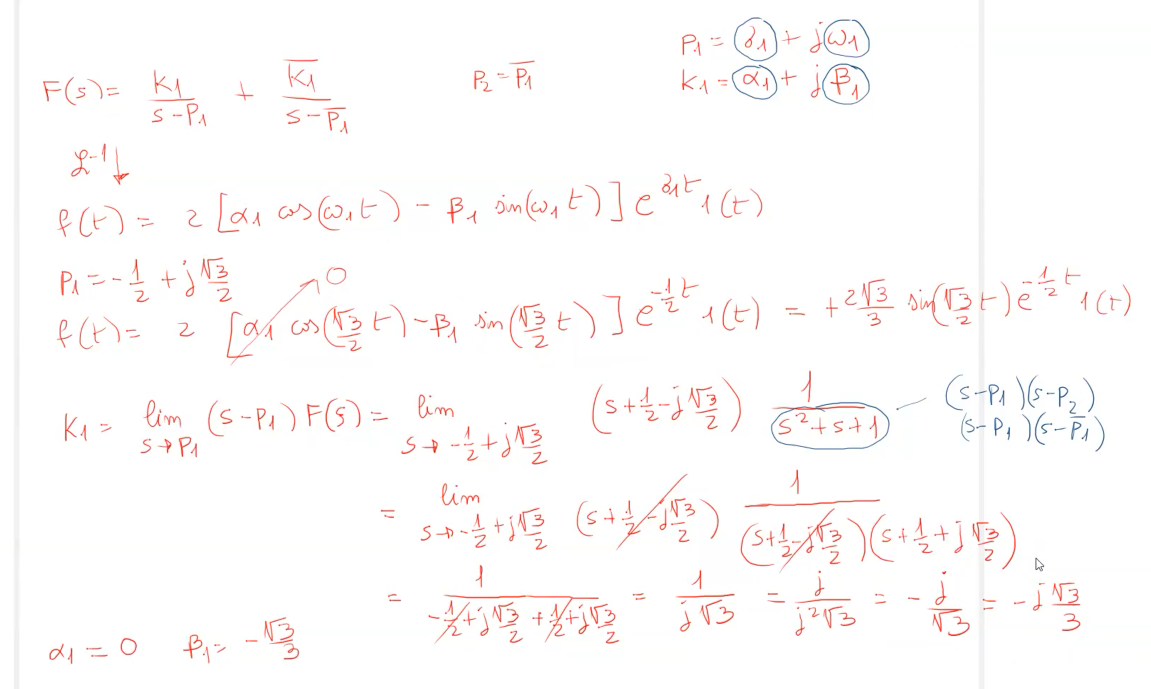 P₁ = σ₁ + jω₁
F(s) = K₁/(s-P₁) + K̅₁/(s-P̅₁)    P₂ = P̅₁    K₁ = α₁ + jβ₁
ℒ⁻¹ ↓
f(t) = 2 [α₁ cos(ω₁t) - β₁ sin(ω₁t)] e^(σ₁t) 1(t)
P₁ = -1/2 + j√3/2    0
f(t) = 2 [α₁ cos(√3/2 t) - β₁ sin(√3/2 t)] e^(-1/2 t) 1(t) = +2√3/3 sin(√3/2 t) e^(-1/2 t) 1(t)
K₁ = lim s→P₁ (s-P₁) F(s) = lim s→-1/2+j√3/2 (s+1/2-j√3/2) 1/(s²+s+1)    (s-P₁)(s-P₂)
(s-P₁)(s-P̅₁)
= lim s→-1/2+j√3/2 (s+1/2-j√3/2) 1/((s+1/2-j√3/2)(s+1/2+j√3/2))
= 1/(-1/2+j√3/2+1/2+j√3/2) = 1/(j√3) = j/(j²√3) = -j/√3 = -j√3/3
α₁ = 0    β₁ = -√3/3